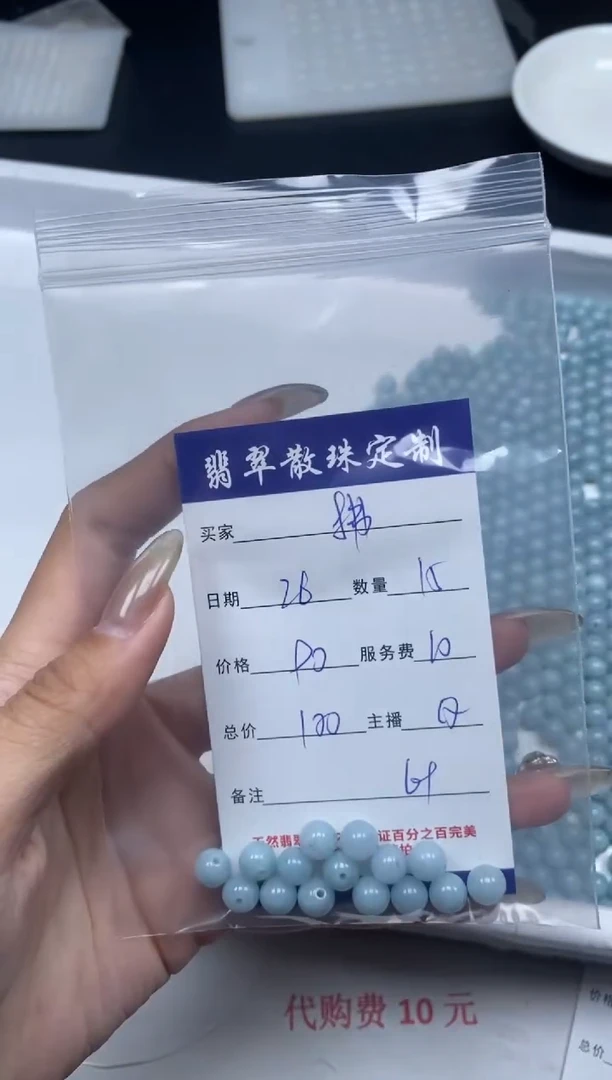 翡翠散珠定制
买家
日期 26 数量 15
价格 90 服务费 10
总价 100 主播
备注
证百分之百完美
代购费 10 元
价格
总价